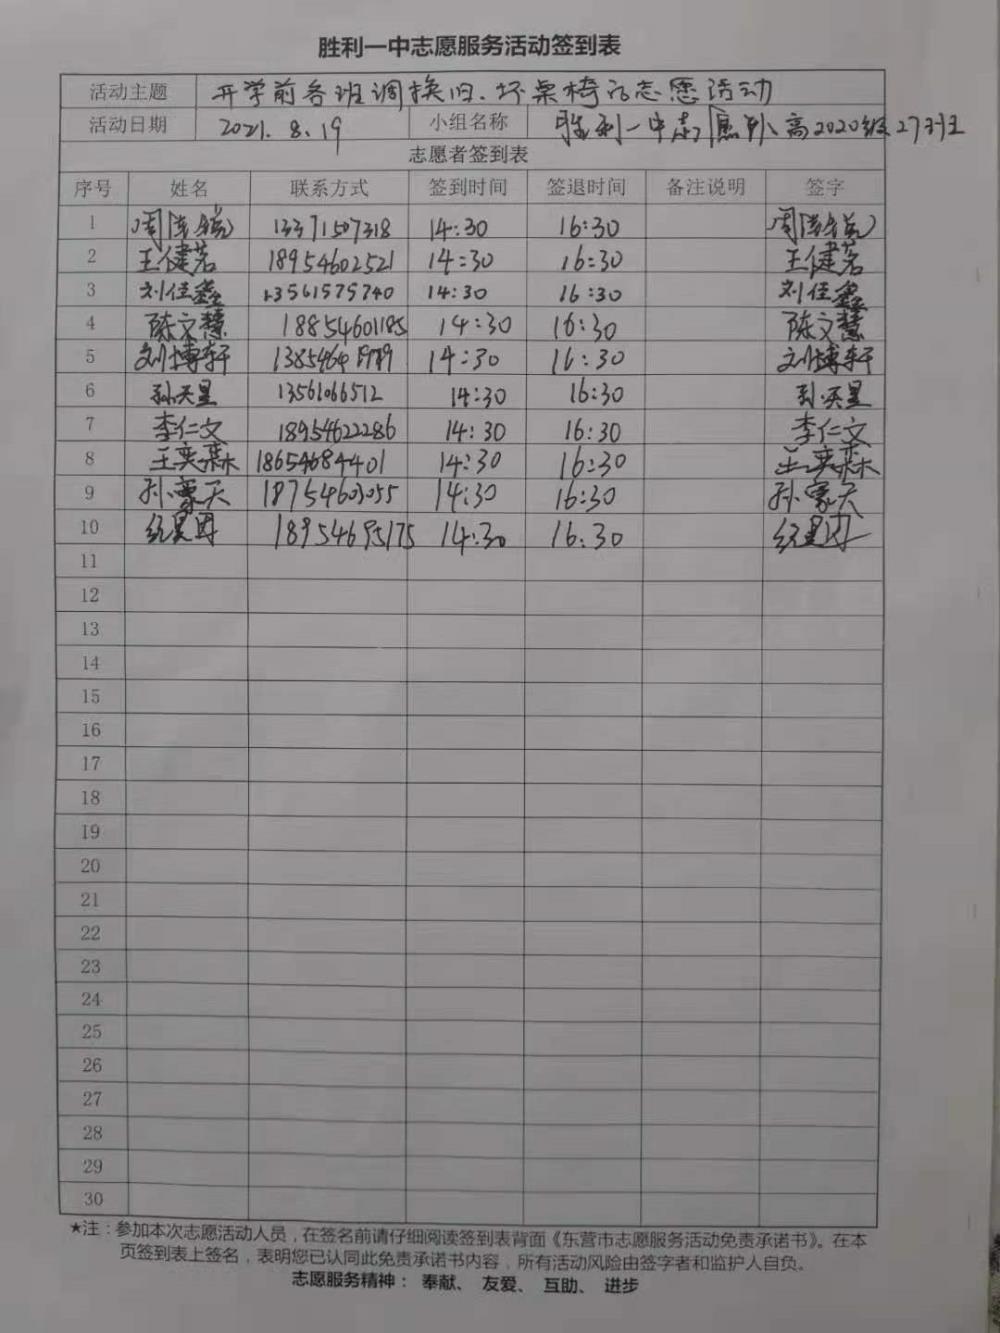 胜利一中志愿服务活动签到表
活动主题 开学前各班调换旧、坏桌椅的志愿活动
活动日期 2021.8.19 小组名称 胜利一中志愿队高2020级27班
志愿者签到表
序号 姓名 联系方式 签到时间 签退时间 备注说明 签字
1 13371507318 14:30 16:30
2 王健茗 18954602521 14:30 16:30 王健茗
3 刘佳鑫 13561575740 14:30 16:30 刘佳鑫
4 陈文慧 18854601185 14:30 16:30 陈文慧
5 刘博轩 14:30 16:30 刘博轩
6 孙天星 13561066512 14:30 16:30 孙天星
7 李仁文 18954622286 14:30 16:30 李仁文
8 王奕霖 18654684401 14:30 16:30 王奕霖
9 孙豪天 14:30 16:30 孙豪天
10 18954695175 14:30 16:30
11
12
13
14
15
16
17
18
19
20
21
22
23
24
25
26
27
28
29
30
★注：参加本次志愿活动人员，在签名前请仔细阅读签到表背面《东营市志愿服务活动免责承诺书》。在本
页签到表上签名，表明您已认同此免责承诺书内容，所有活动风险由签字者和监护人自负。
志愿服务精神： 奉献、 友爱、 互助、 进步